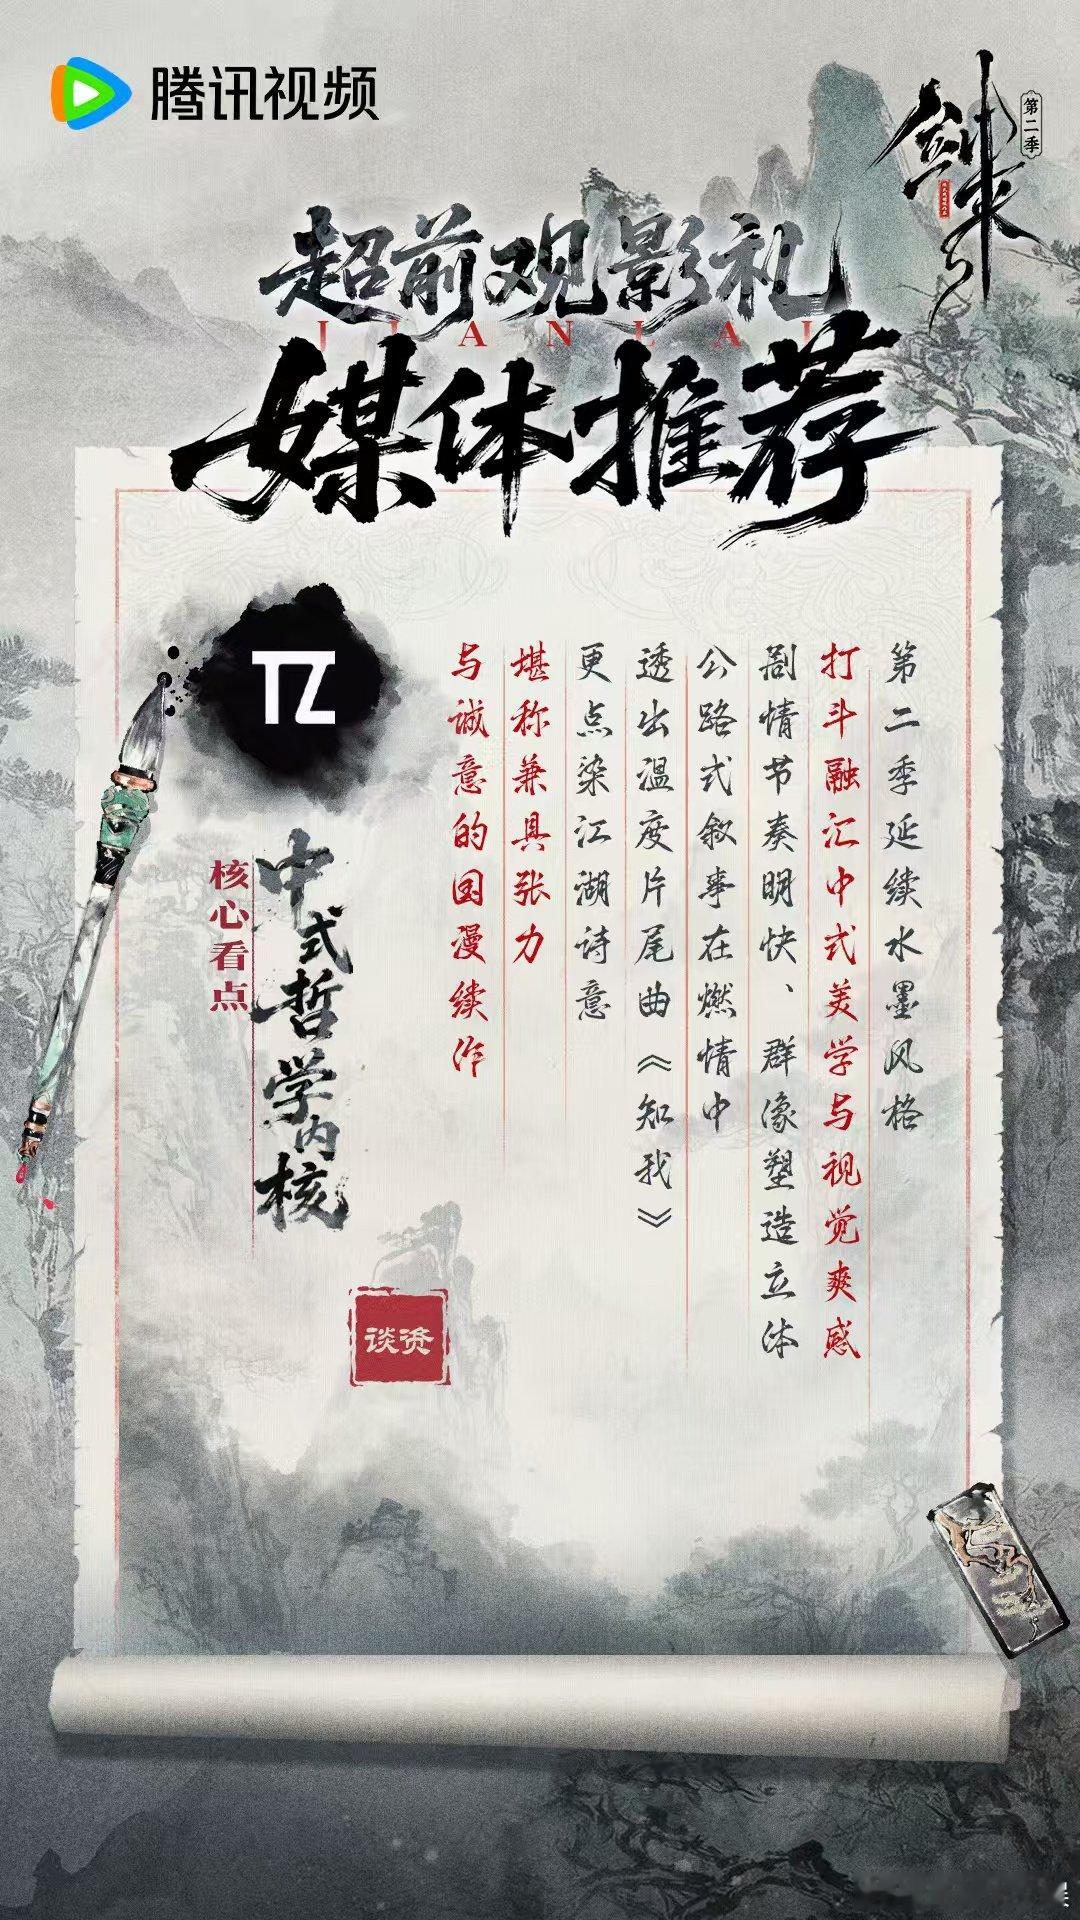 腾讯视频
剑来
第二季
超前观影礼
JIANLAI
媒体推荐
第二季延续水墨风格
打斗融汇中式美学与视觉爽感
剧情节奏明快、群像塑造立体
公路式叙事在燃情中
透出温度片尾曲《知我》
更点染江湖诗意
堪称兼具张力
与诚意的国漫续作
TZ
中式哲学内核
核心看点
谈资